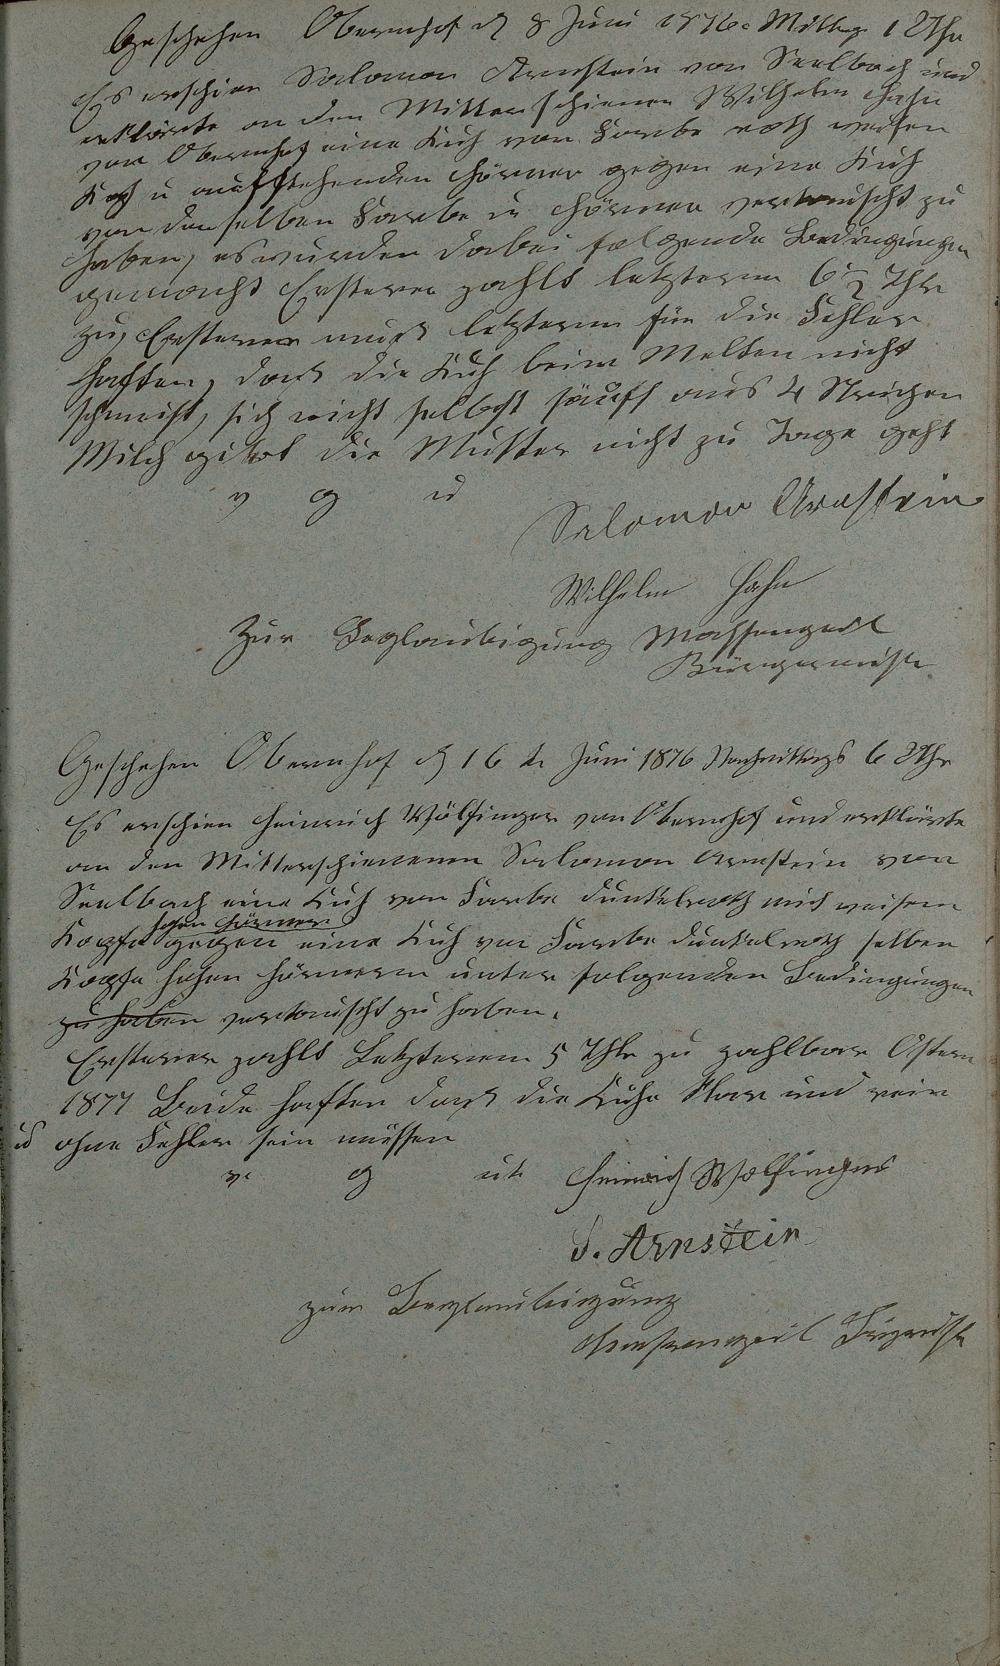 Geschehen Obernhof d 8 Juni 1876. Mittag 1 Uhr
Es erschien Salomon Arnstein von Seelbach und
erklärte an den Mitterschienen Wilhelm Hahn
von Obernhof eine Kuh von Farbe roth weisen
Kopf u aufstehenden Hörner gegen eine Kuh
von derselben Farbe u Hörner vertauscht zu
haben, es wurden dabei folgende Bedingungen
gemacht Ersterer zahlt letzterem 6½ Thlr
zu, Ersterer muß letzterem für die Fehler
haften, das die Kuh beim Melken nicht
schmeist, sich nicht selbst säuft aus 4 Strichen
Milch gibt die Mutter nicht zu Tage geht
v g u
Salomon Arnstein
Wilhelm Hahn
Zur Beglaubigung Massengeil
Bürgermeister
Geschehen Obernhof d 16 t Juni 1876 Nachmittags 6 Uhr
Es erschien Heinrich Wölfinger von Obernhof und erklärte
an den Mitterschienenen Salomon Arnstein von
Seelbach eine Kuh von Farbe dunkelroth mit weisem
hohen Hörner
Kopfe gegen eine Kuh von Farbe dunkelroth selben
Kopfe hohen Hörnern unter folgenden Bedingungen
zu haben vertauscht zu haben.
Ersterer zahlt Letzterem 5 Thlr zu zahlbar Ostern
1877 Beide haften das die Kühe klar und rein
ohne Fehler sein müssen
v. g u.
Heinrich Wölfinger
S. Arnstein
zur Beglaubigung
Massengeil Brgrmstr